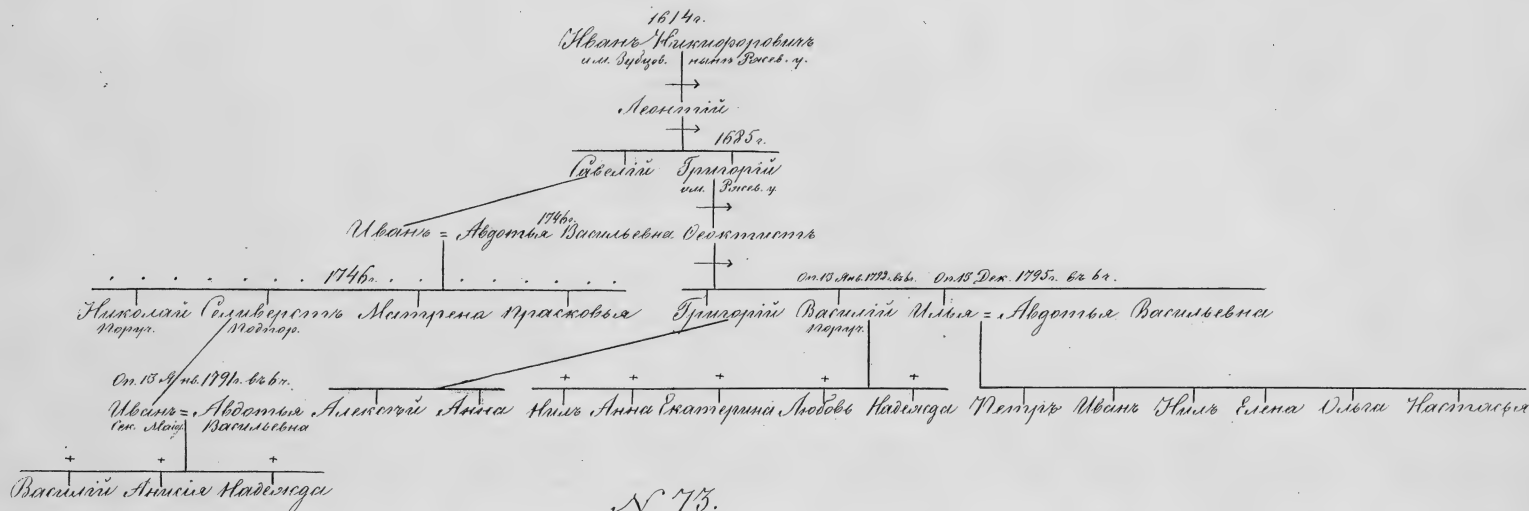 1614 г.
Иванъ Никифоровичъ
им. Зубцов. нынѣ Ржев. у.
Леонтій
1685 г.
Савелій Григорій
им. Ржев. у.
1746 г.
Иванъ = Авдотья Васильевна Ѳеоктистъ
1746 г. Оп. 13 Янв. 1792 г. въ 6 г. Оп. 15 Дек. 1795 г. въ 6 г.
Николай Селиверстъ Матрена Прасковья Григорій Василій Илья = Авдотья Васильевна
Поруч. Подпор. поруч.
Оп. 13 Янв. 1791 г. въ 6 г.
Иванъ = Авдотья Алексѣй Анна Нилъ Анна Екатерина Любовь Надежда Петръ Иванъ Нилъ Елена Ольга Настасья
Сек. Маіор. Васильевна
Василій Анисія Надежда
N 73.